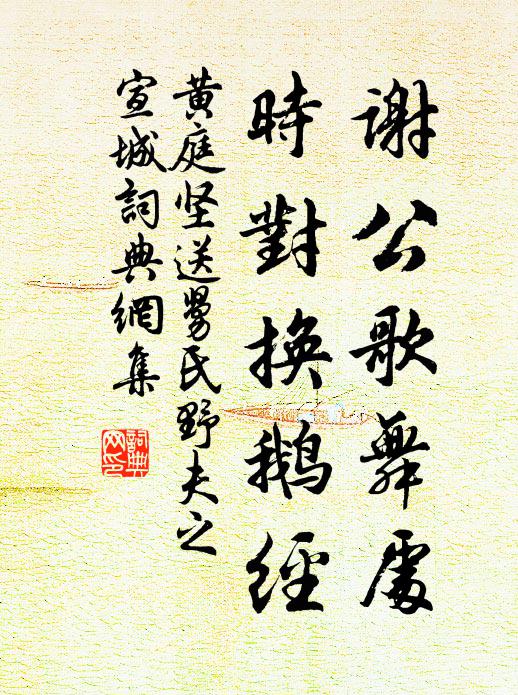 謝公歌舞處
時對換鵝經
黄庭坚送舅氏野夫之
宣城詞典網集
詞典
网印